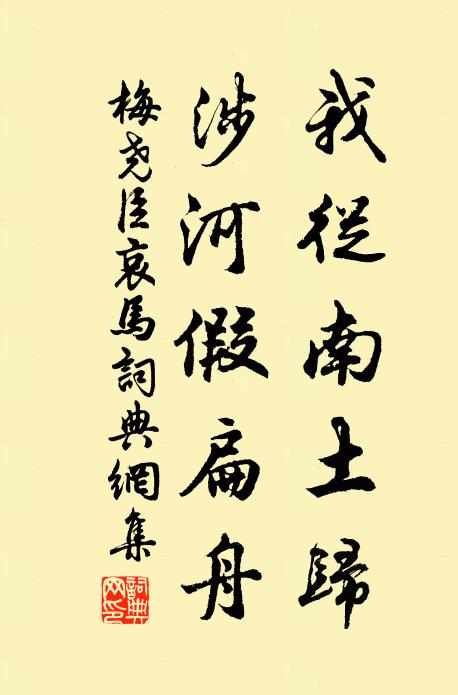 我從南土歸
涉河假扁舟
梅尧臣哀馬詞典網集
詞典网印